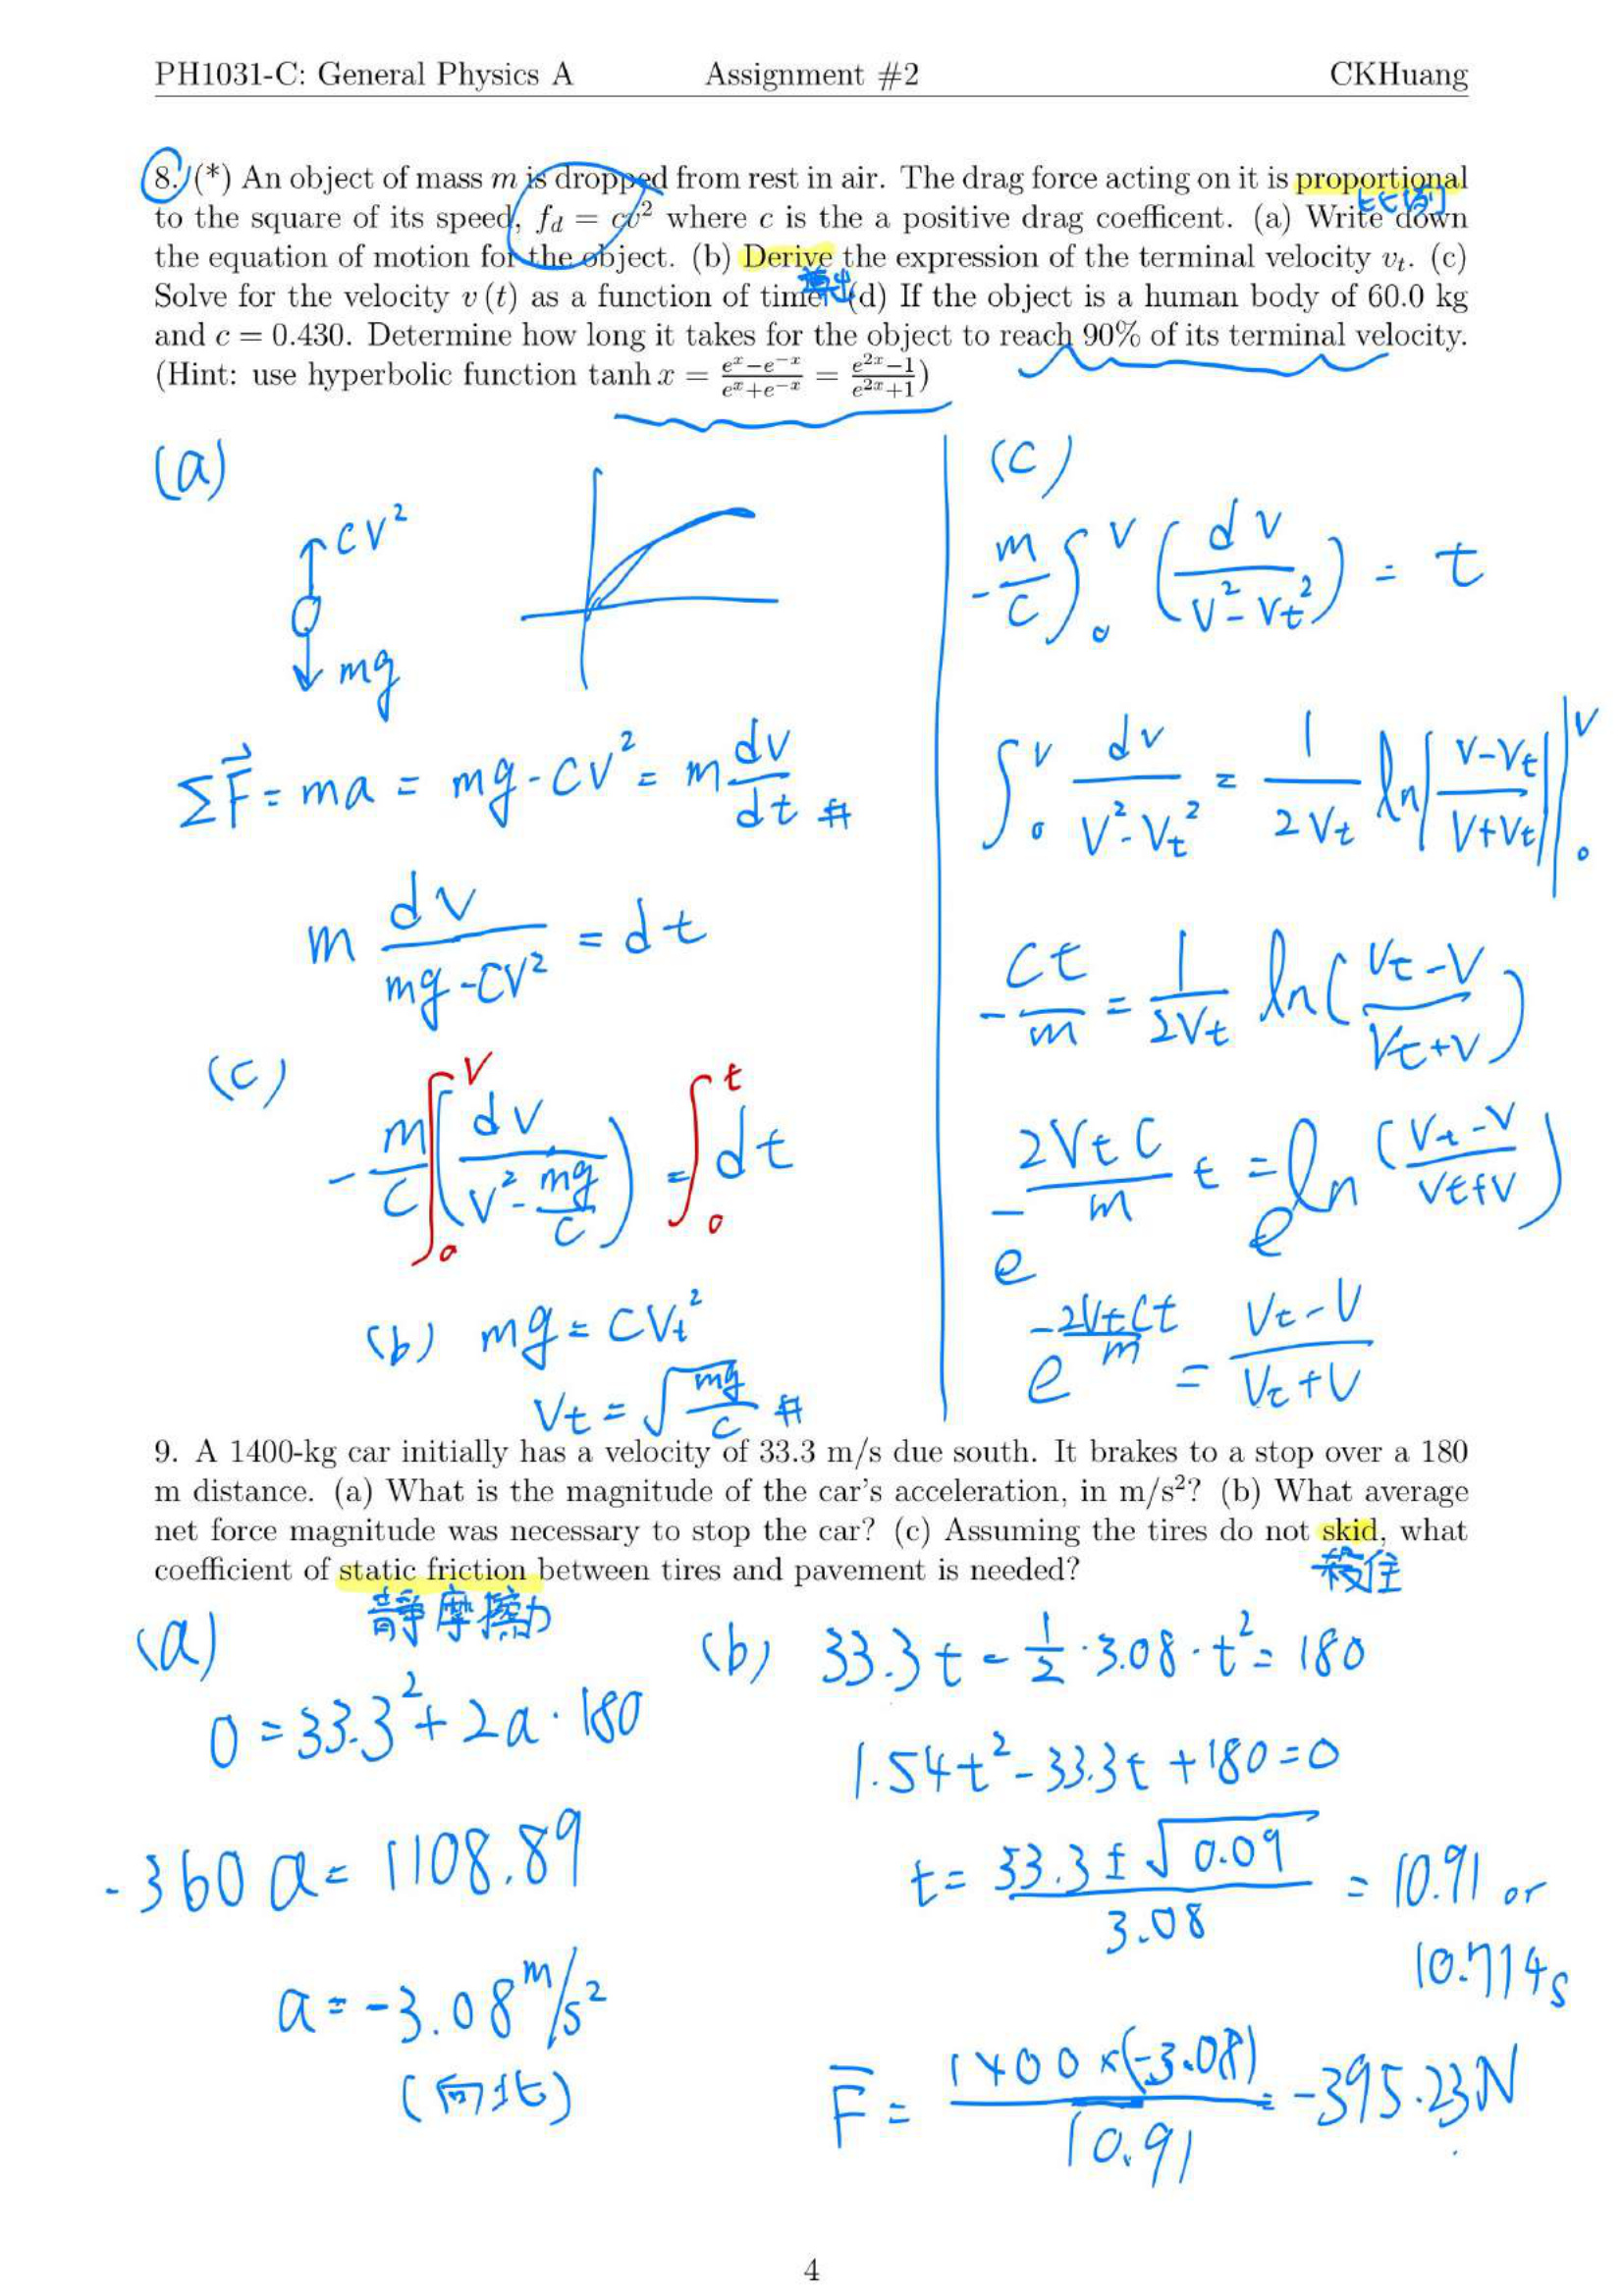 PH1031-C: General Physics A Assignment #2 CKHuang
8. (*) An object of mass m is dropped from rest in air. The drag force acting on it is proportional
比例
to the square of its speed, f_d = cv² where c is the a positive drag coefficent. (a) Write down
the equation of motion for the object. (b) Derive the expression of the terminal velocity v_t. (c)
導出
Solve for the velocity v (t) as a function of time. (d) If the object is a human body of 60.0 kg
and c = 0.430. Determine how long it takes for the object to reach 90% of its terminal velocity.
(Hint: use hyperbolic function tanh x = (e^x−e^−x)/(e^x+e^−x) = (e^2x−1)/(e^2x+1))
(a)
cv²
mg
ΣF⃗ = ma = mg - cv² = m dv/dt #
m dv/(mg-cv²) = dt
(c)
-m/c ∫₀^v (dv/(v² - mg/c)) = ∫₀^t dt
(b) mg = cVt²
Vt = √(mg/c) #
(c)
-m/c ∫₀^v (dv/(v² - Vt²)) = t
∫₀^v dv/(v² - Vt²) = 1/(2Vt) ln|(v-Vt)/(v+Vt)| |₀^v
-ct/m = 1/(2Vt) ln((Vt-v)/(Vt+v))
e^(-(2Vt c/m) t) = e^(ln((Vt-v)/(Vt+v)))
e^(-2Vtct/m) = (Vt-v)/(Vt+v)
9. A 1400-kg car initially has a velocity of 33.3 m/s due south. It brakes to a stop over a 180
m distance. (a) What is the magnitude of the car's acceleration, in m/s²? (b) What average
net force magnitude was necessary to stop the car? (c) Assuming the tires do not skid, what
coefficient of static friction between tires and pavement is needed?
靜摩擦力
(a)
0 = 33.3² + 2a · 180
-360 a = 1108.89
a = -3.08 m/s²
(向北)
(b) 33.3t - 1/2 · 3.08 · t² = 180
1.54t² - 33.3t + 180 = 0
t = (33.3 ± √0.09)/3.08 = 10.91 or
10.714s
F̄ = 1400 × (-3.08)/10.91 = -395.23N
4